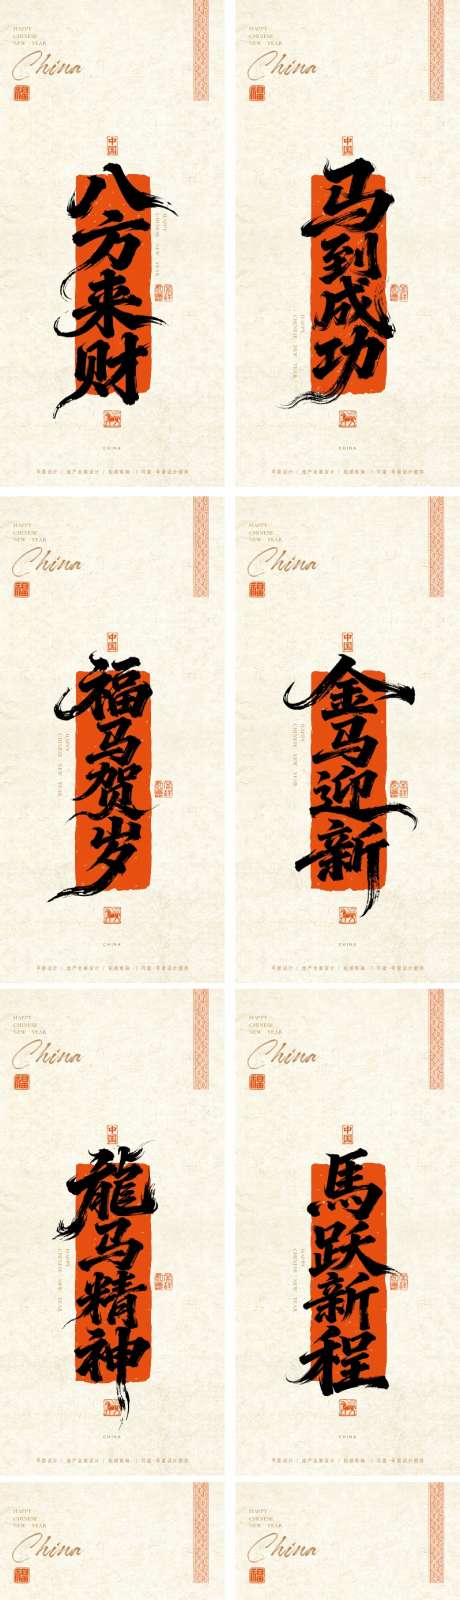 HAPPY
CHINESE
NEW YEAR
China
福
中国
八方来财
HAPPY
CHINESE NEW YEAR
CHINA
HAPPY
CHINESE
NEW YEAR
China
福
中国
马到成功
HAPPY
CHINESE NEW YEAR
CHINA
HAPPY
CHINESE
NEW YEAR
China
福
中国
福马贺岁
HAPPY
CHINESE NEW YEAR
CHINA
HAPPY
CHINESE
NEW YEAR
China
福
中国
金马迎新
HAPPY
CHINESE NEW YEAR
CHINA
HAPPY
CHINESE
NEW YEAR
China
福
中国
龍马精神
HAPPY
CHINESE NEW YEAR
CHINA
HAPPY
CHINESE
NEW YEAR
China
福
中国
馬跃新程
HAPPY
CHINESE NEW YEAR
CHINA
HAPPY
CHINESE
NEW YEAR
China
HAPPY
CHINESE
NEW YEAR
China